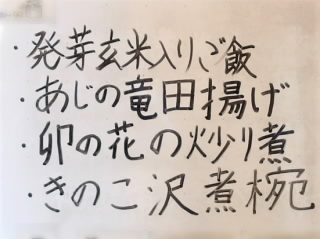 ・発芽玄米入りご飯
・あじの竜田揚げ
・卯の花の炒り煮
・きのこ沢煮椀